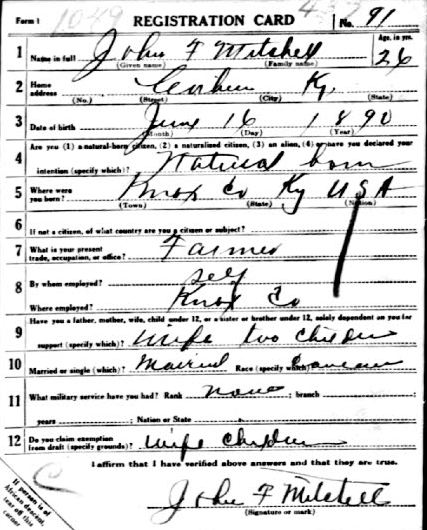 Form 1 1049 REGISTRATION CARD No. 91
Age, in yrs.
1 Name in full John F Mitchell 26
(Given name) (Family name)
2 Home address Corbin Ky.
(No.) (Street) (City) (State)
3 Date of birth June 16 1890
(Month) (Day) (Year)
Are you (1) a natural-born citizen, (2) a naturalized citizen, (3) an alien, (4) or have you declared your
4 intention (specify which)? Natural born
5 Where were you born? Knox Co Ky USA
(Town) (State) (Nation)
6 If not a citizen, of what country are you a citizen or subject?
7 What is your present trade, occupation, or office? Farmer
8 By whom employed? self
Where employed? Knox Co
Have you a father, mother, wife, child under 12, or a sister or brother under 12, solely dependent on you for
9 support (specify which)? Wife two children
10 Married or single (which)? Married Race (specify which)?
11 What military service have you had? Rank none ; branch
years ; Nation or State
12 Do you claim exemption from draft (specify grounds)? Wife Children
I affirm that I have verified above answers and that they are true.
John F Mitchell
(Signature or mark)
If person is of
African descent,
tear off this
corner.